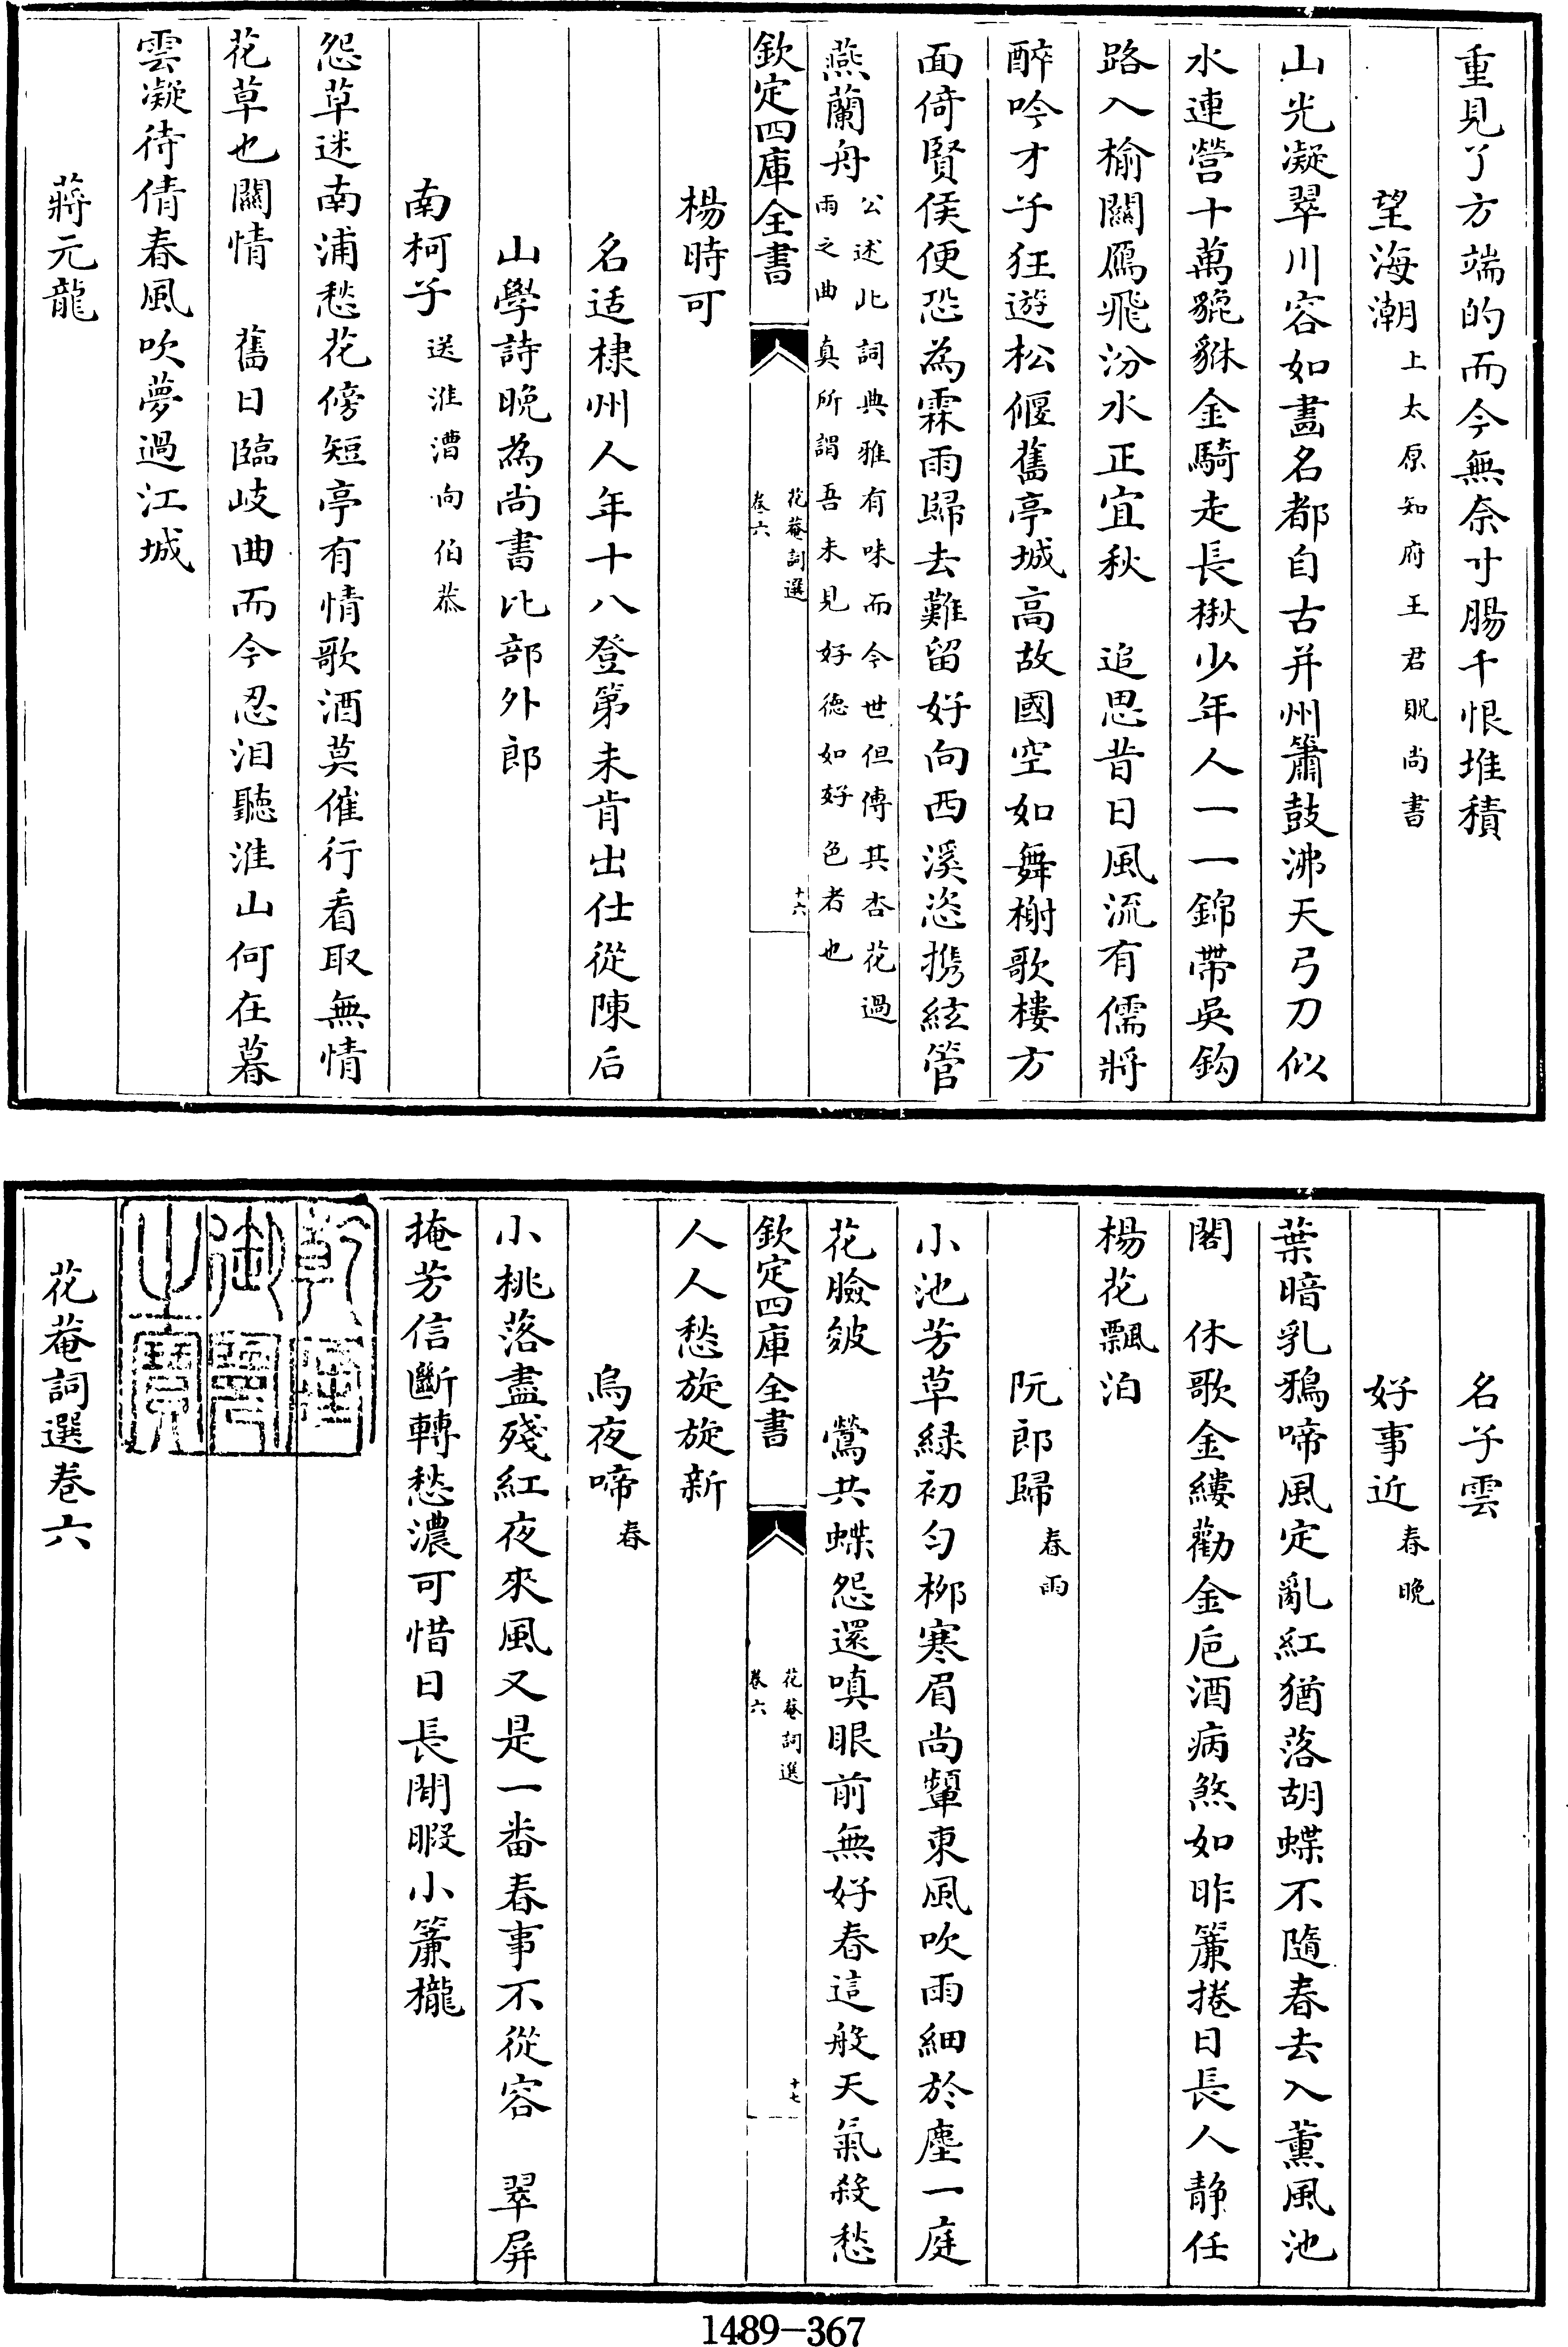 重見了方端的而今無奈寸腸千恨堆積
望海潮上太原知府王君貺尚書
山光凝翠川容如畫名都自古并州簫鼓沸天弓刀似
水連營十萬貔貅金騎走長楸少年人一一錦帶吳鈎
路入榆關鴈飛汾水正宜秋　追思昔日風流有儒將
醉吟才子狂遊松偃舊亭城高故國空如舞榭歌樓方
面倚賢侯便恐為霖雨歸去難留好向西溪恣携絃管
燕蘭舟
公述此詞典雅有味而今世但傳其杏花過
雨之曲真所謂吾未見好德如好色者也
欽定四庫全書
花菴詞選
卷六
十六
楊時可
名适棣州人年十八登第未肯出仕從陳后
山學詩晚為尚書比部外郎
南柯子送淮漕向伯恭
怨草迷南浦愁花傍短亭有情歌酒莫催行看取無情
花草也關情　舊日臨岐曲而今忍淚聽淮山何在暮
雲凝待倩春風吹夢過江城
蔣元龍
名子雲
好事近春晚
葉暗乳鴉啼風定亂紅猶落胡蝶不隨春去入薰風池
閣　休歌金縷勸金巵酒病煞如昨簾捲日長人靜任
楊花飄泊
阮郎歸春雨
小池芳草綠初勻柳寒眉尚顰東風吹雨細於塵一庭
花臉皴　鶯共蝶怨還嗔眼前無好春這般天氣殺愁
欽定四庫全書
花菴詞選
卷六
十七
人人愁旋旋新
烏夜啼春
小桃落盡殘紅夜來風又是一番春事不從容　翠屏
掩芳信斷轉愁濃可惜日長閒暇小簾櫳
乾隆
御覽
之寶
花菴詞選卷六
1489-367